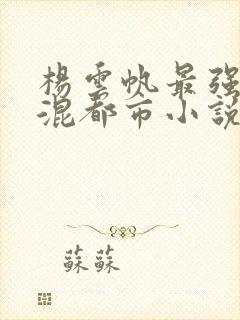 楊雲帆最强
混都市小説
蘇蘇